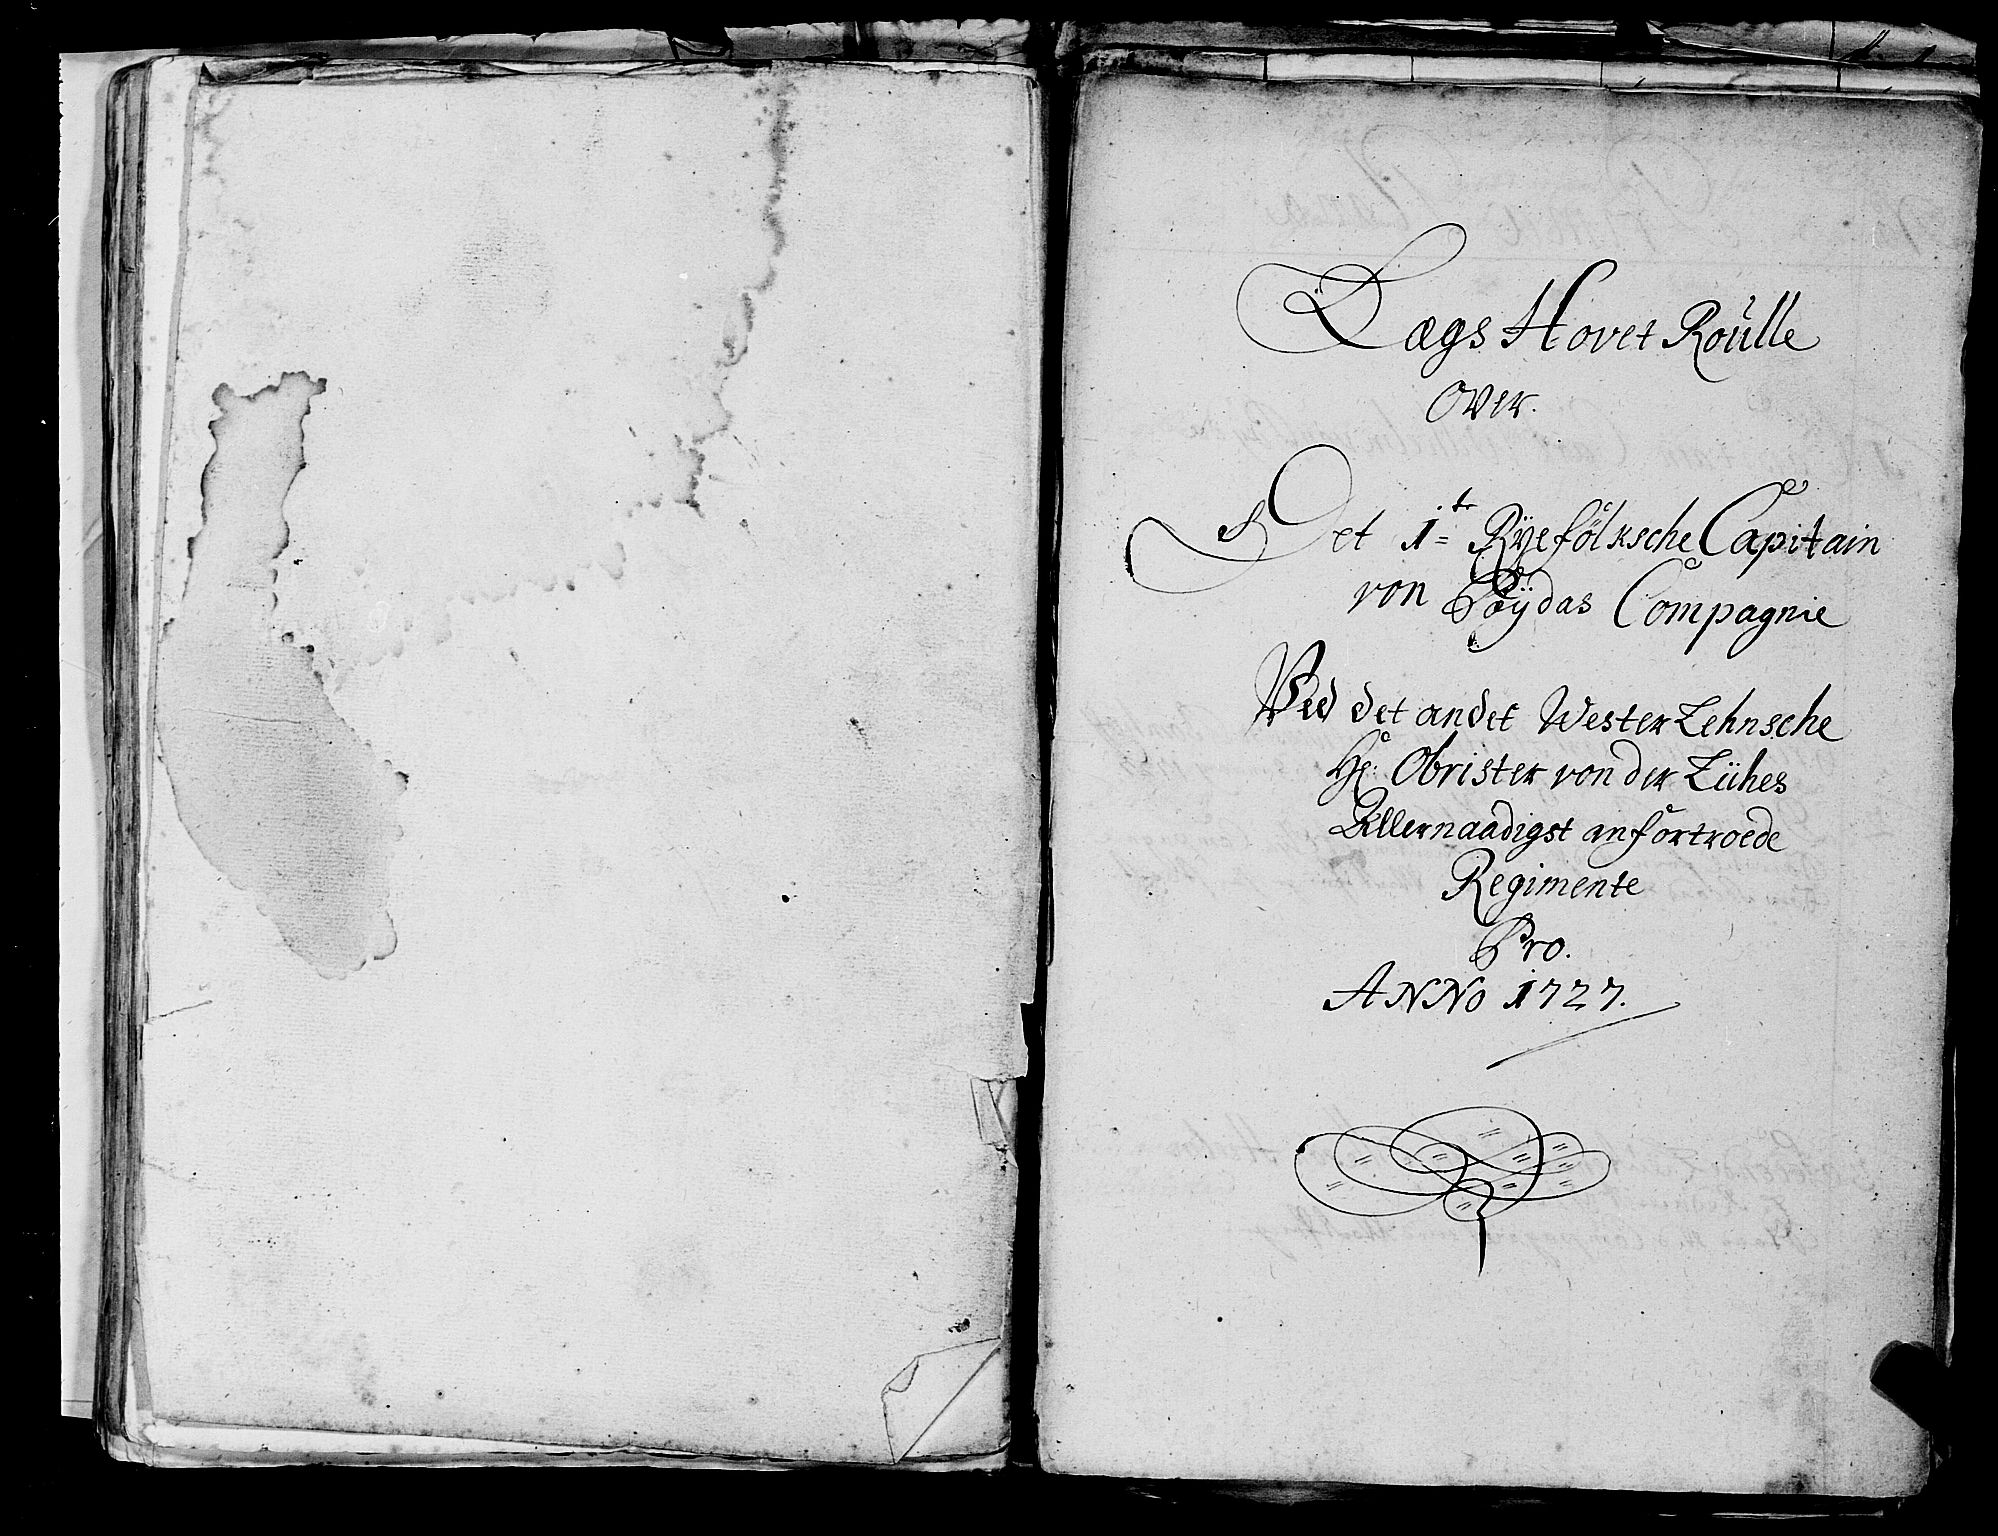 Lægs Hovet Roulle
over.
Det 1te Ryefölksche Capitain
von Pöÿdas Compagnie
Ved det andet Wester Lehnsche
Hr: Obrister von der Lühes
Allernaadigst anfortroede
Regimente
Pro.
ANNO 1727.